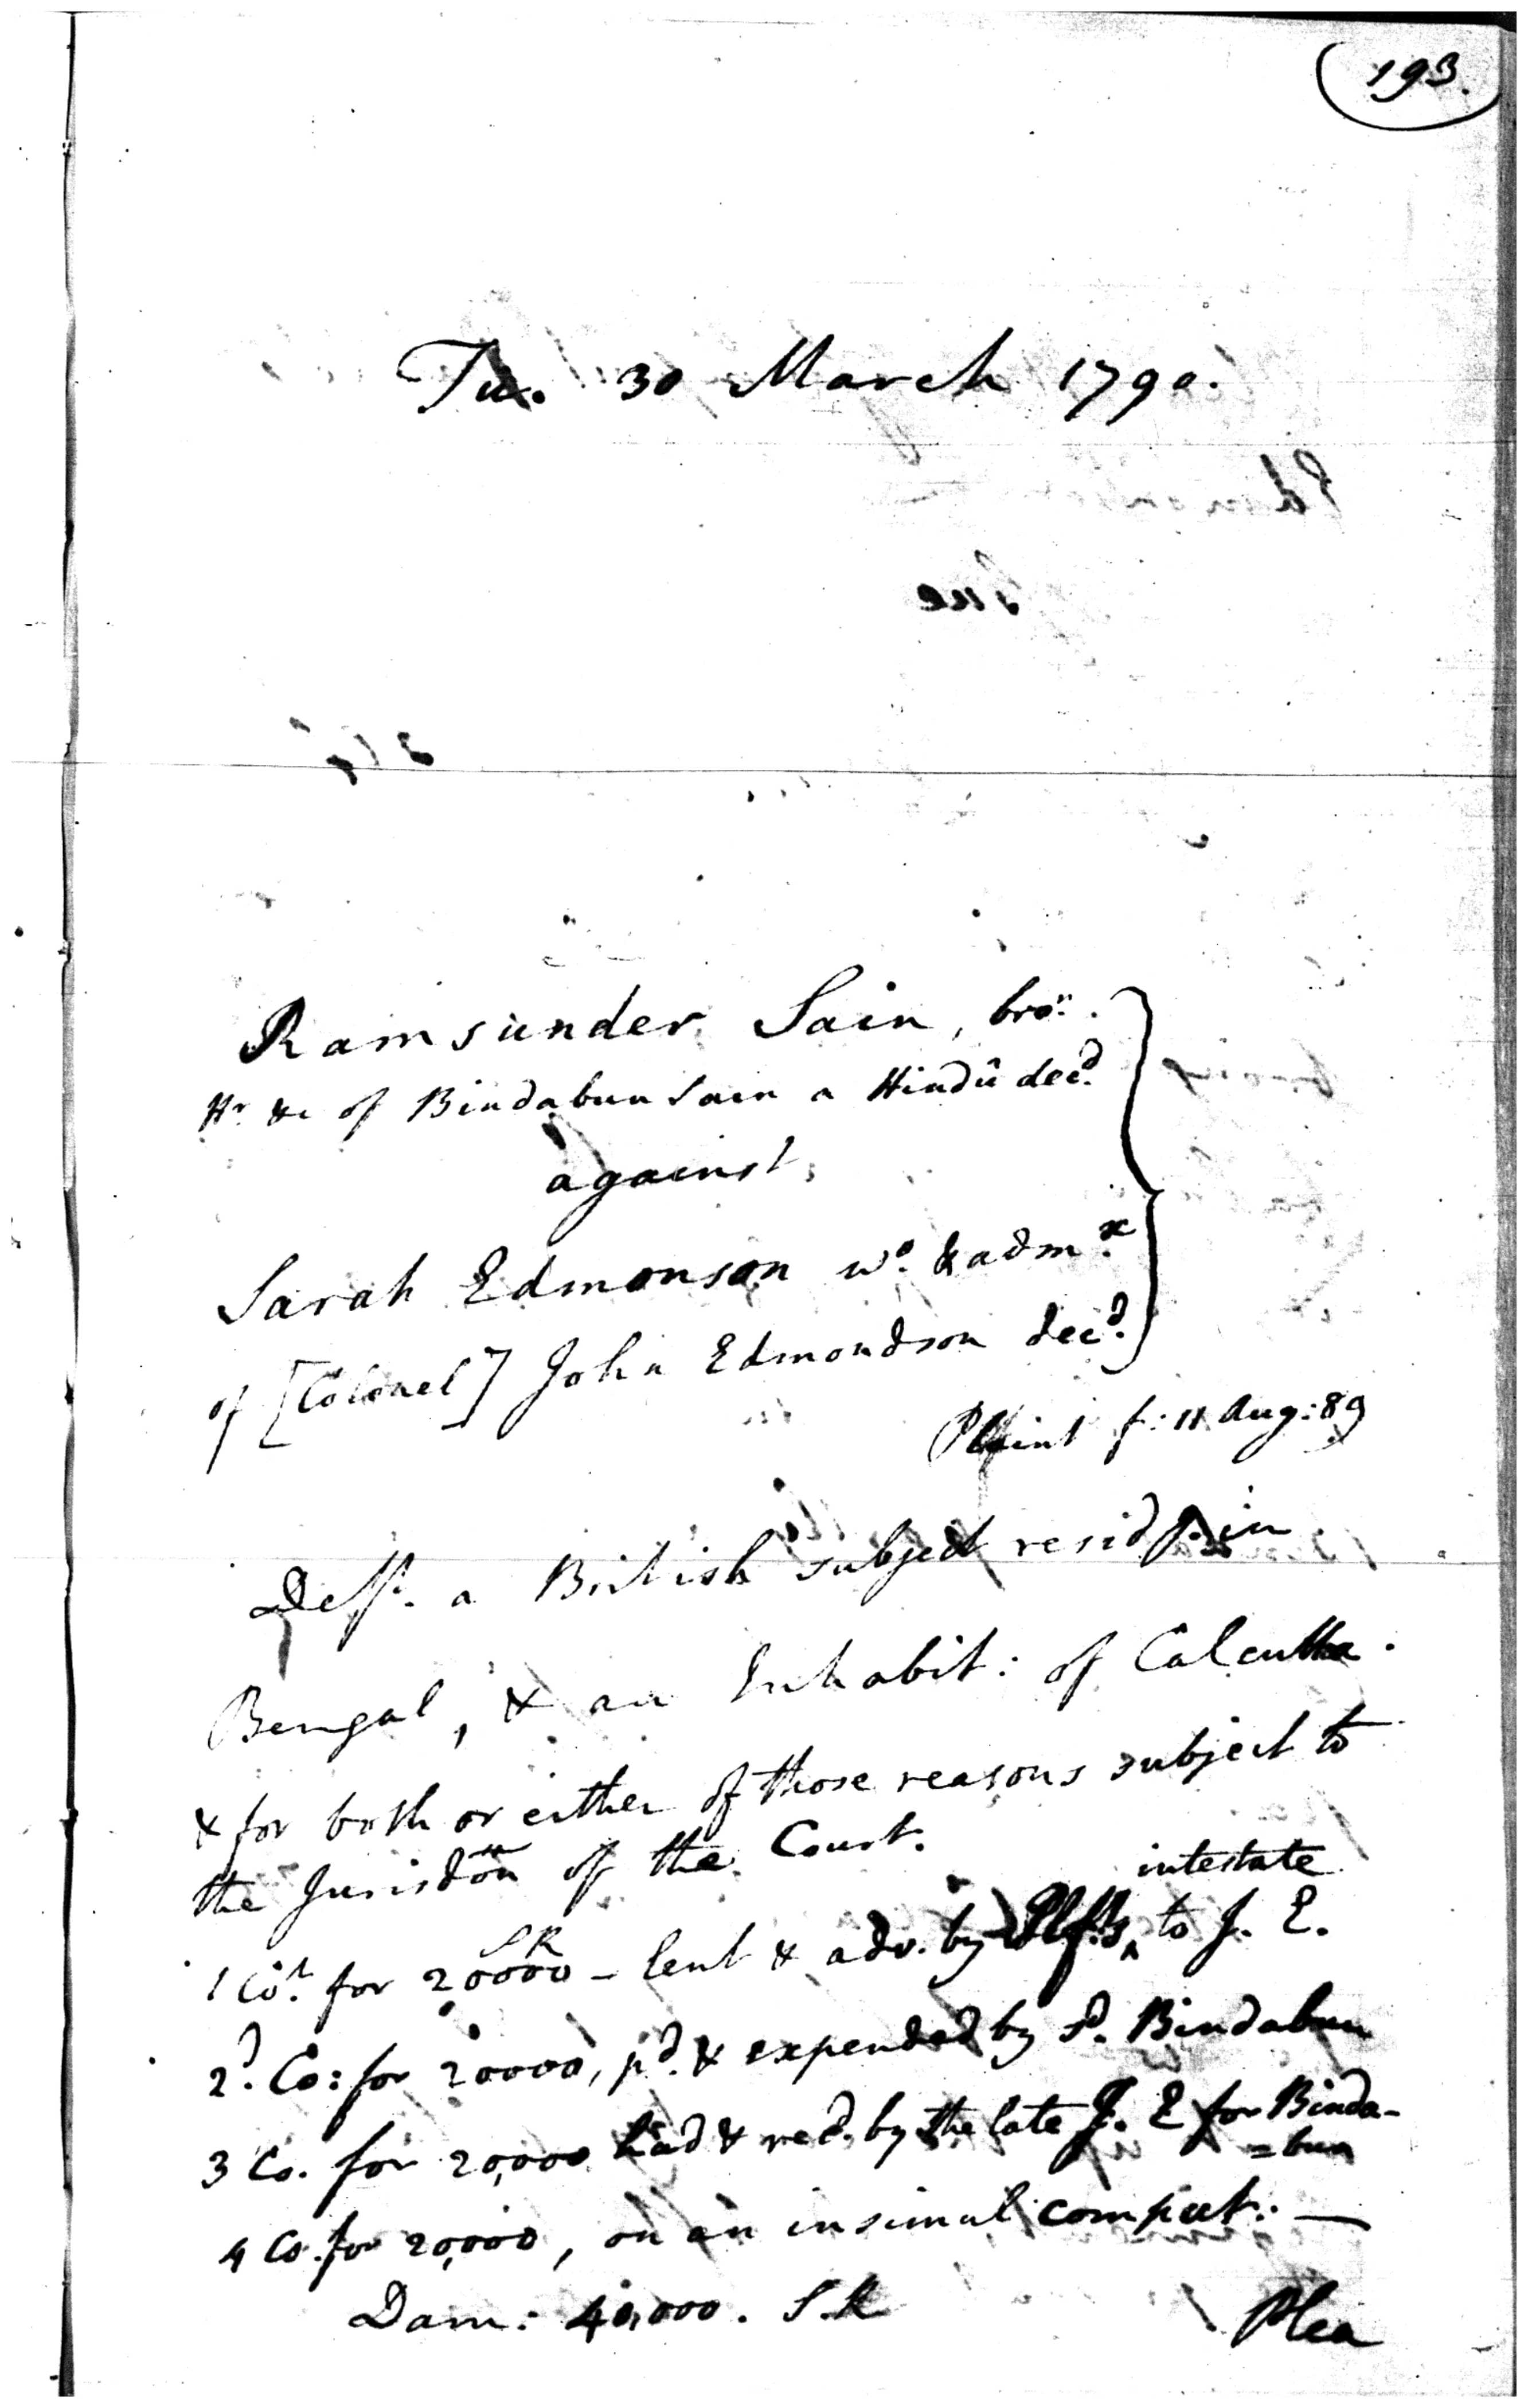 193.
Tu. 30 March 1790.
Ramsunder Sain, bror.
Hr &c of Bindabun Sain a Hindû decd.
against
Sarah Edmonson wo. & admx.
of [Colonel] John Edmondson decd.
Plaint f: 11 Aug: 89
Deft. a British subject residg. in
Bengal, & an Inhabit: of Calcutta.
& for both or either of those reasons subject to
the Jurisdon of the Court.
intestate
1 Cot. for 20000 SR - lent & adv. by Plf's ^ to J. E.
2d. Co: for 20000, pd. & expended by sd. Bindabun
3 Co. for 20,000 had & recd. by the late J. E for Binda-
=bun
4 Co. for 20,000, on an insimul comput: —
Dam: 40,000. S.R
Plea